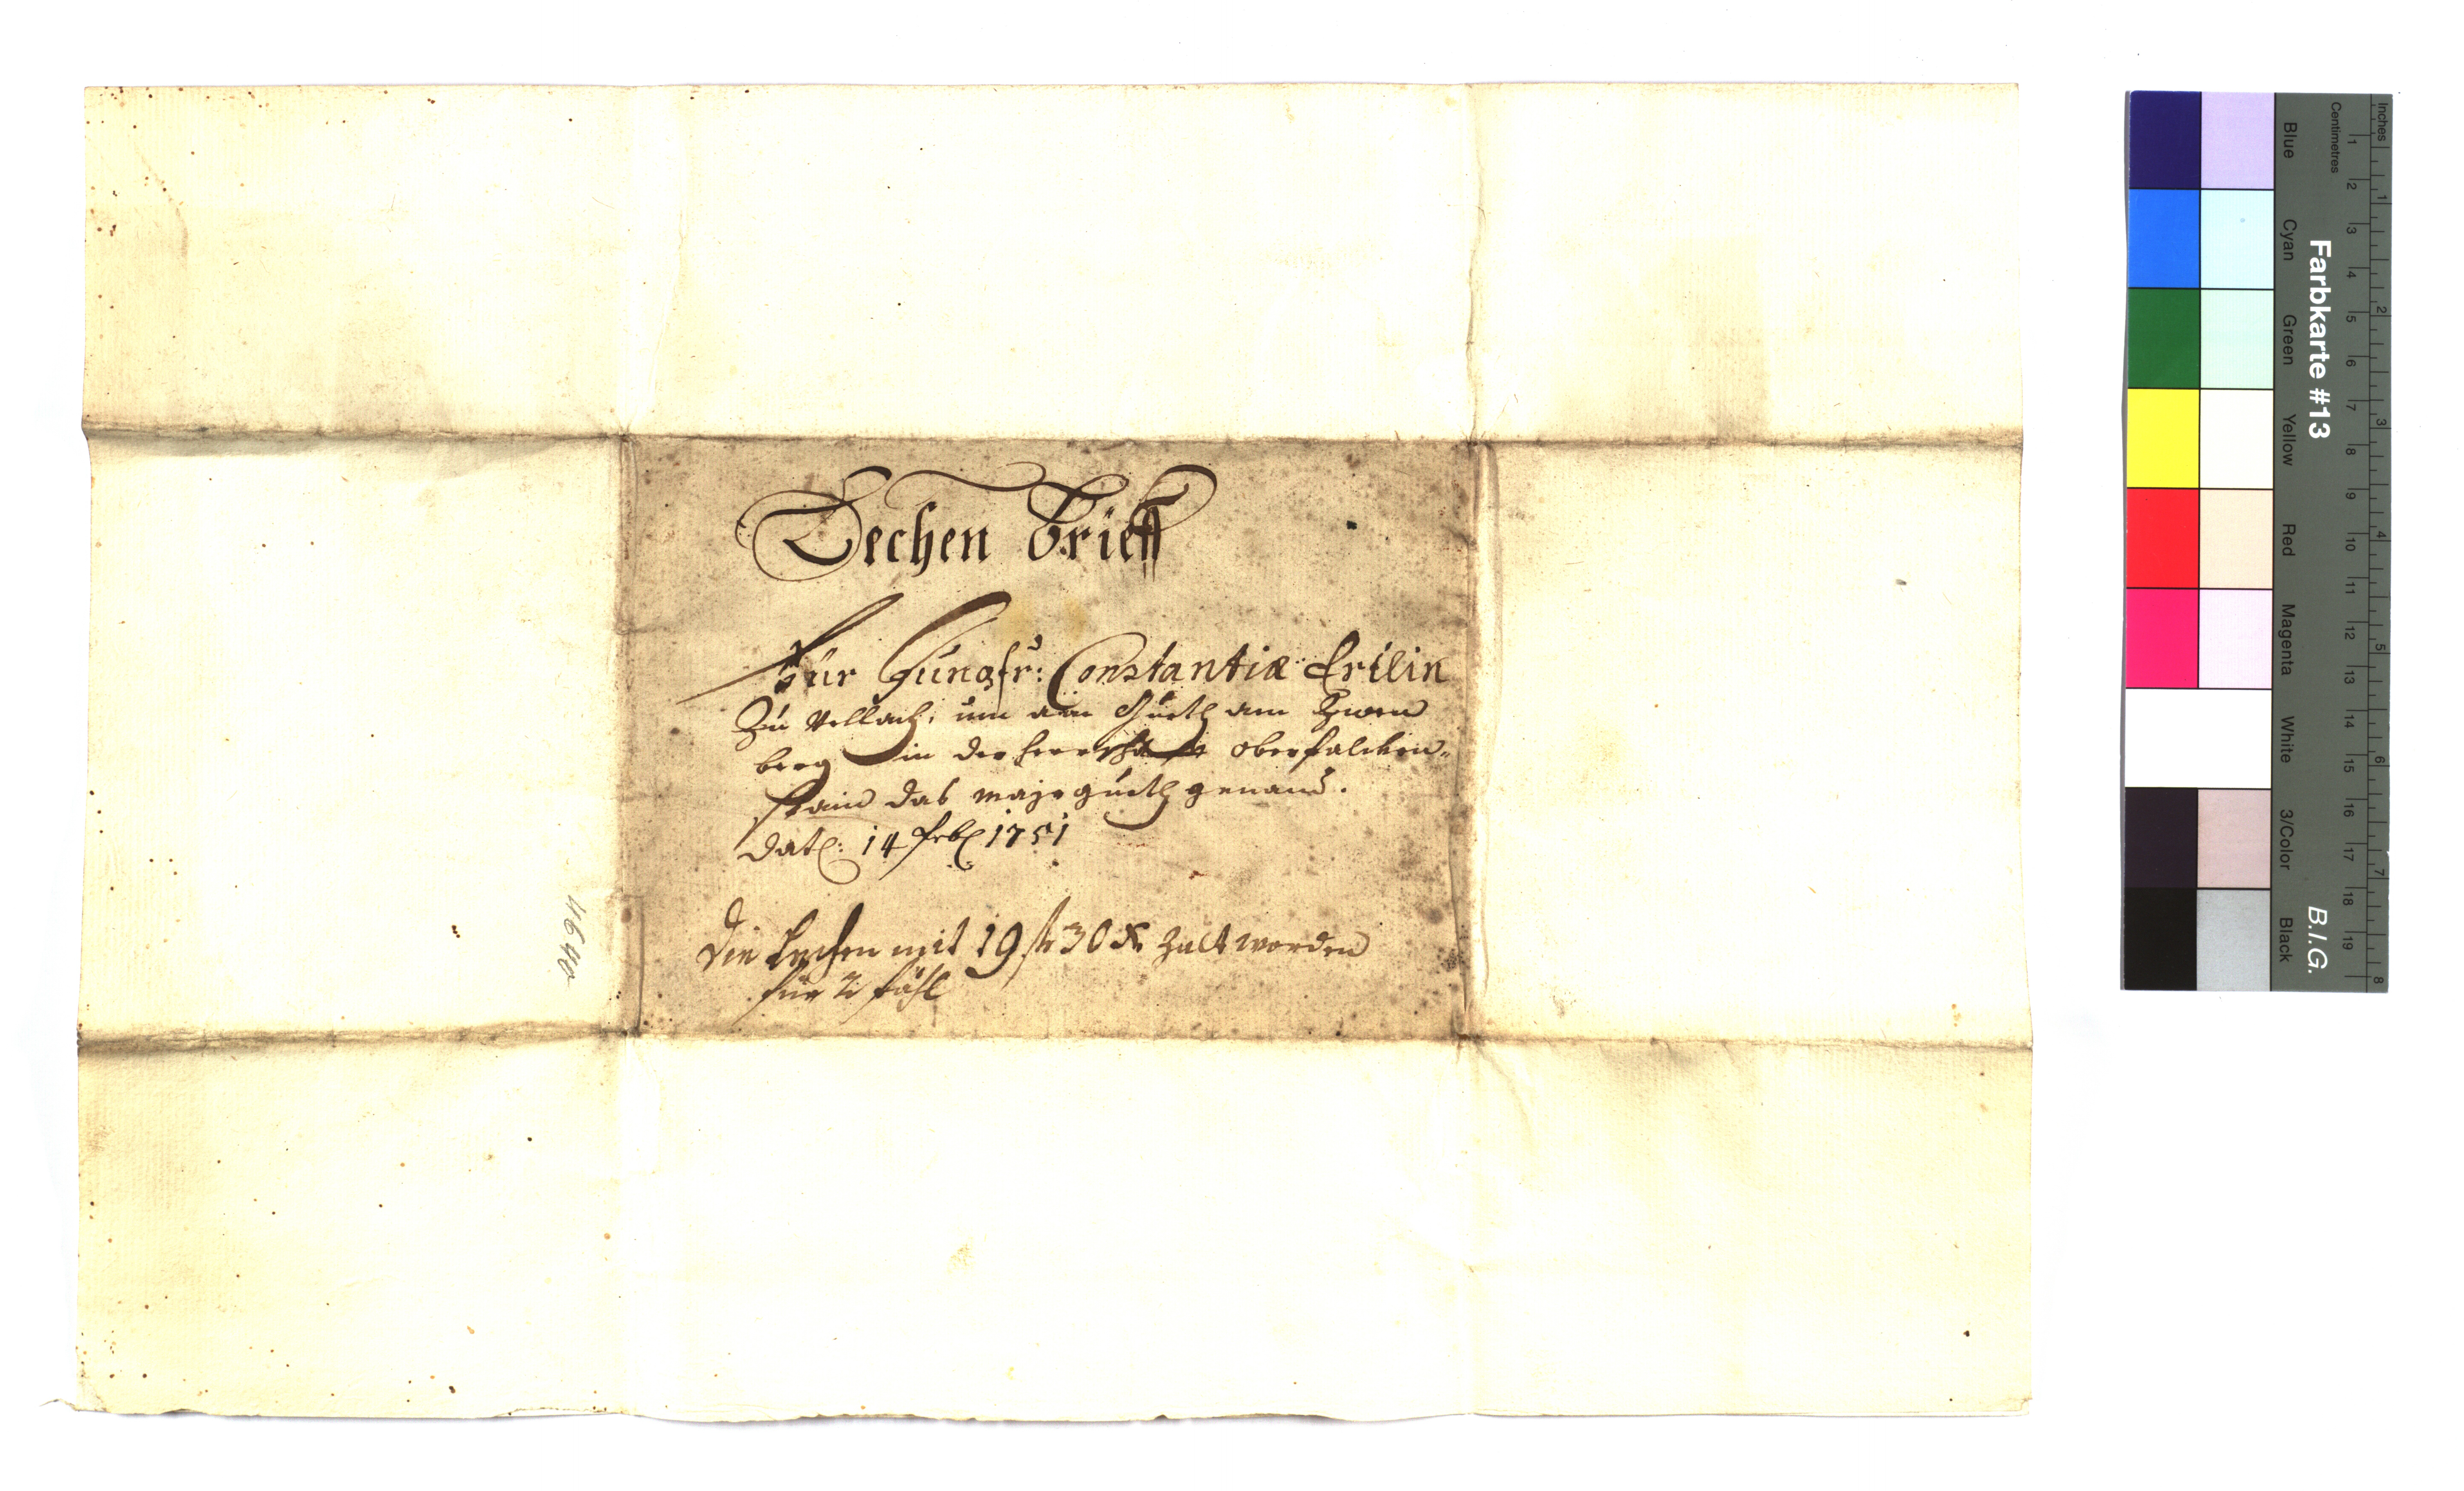 Lechen brieff
Für Jungfr: Constantiæ Erilin
Zu Vellach: um ain Guetl am Zwen
berg in der herrschafft oberfalcken-
stain das mayrguetl genand.
Dat: 14 Feb 1751
Die Lechen mit 19 fl 30 xr zalt worden
für 2 fähl
4640
Inches
Centimetres
Farbkarte #13
B.I.G.
Blue
Cyan
Green
Yellow
Red
Magenta
White
3/Color
Black
1 2 3 4 5 6 7 8 9 10 11 12 13 14 15 16 17 18 19
1 2 3 4 5 6 7 8